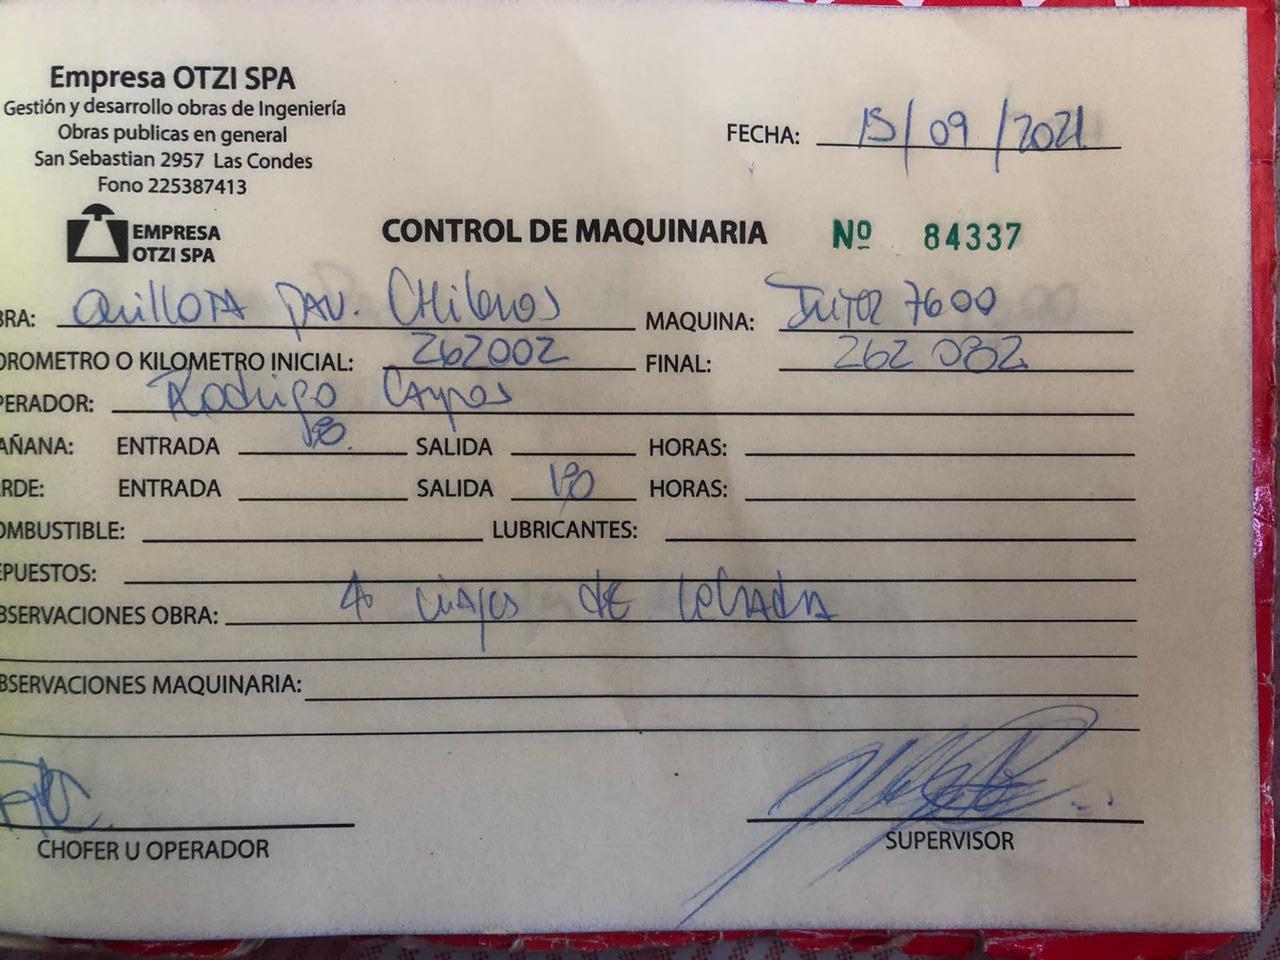 Empresa OTZI SPA
Gestión y desarrollo obras de Ingeniería
Obras publicas en general
San Sebastian 2957 Las Condes
Fono 225387413
FECHA: 15/09/2021
EMPRESA
OTZI SPA
CONTROL DE MAQUINARIA Nº 84337
BRA: Quillota PAV. CHilenos MAQUINA: 7600
OROMETRO O KILOMETRO INICIAL: 262002 FINAL: 262 082
PERADOR: Rodrigo Campos
AÑANA: ENTRADA SALIDA HORAS:
RDE: ENTRADA SALIDA HORAS:
OMBUSTIBLE: LUBRICANTES:
EPUESTOS:
BSERVACIONES OBRA: 4 viajes de lechada
BSERVACIONES MAQUINARIA:
CHOFER U OPERADOR SUPERVISOR